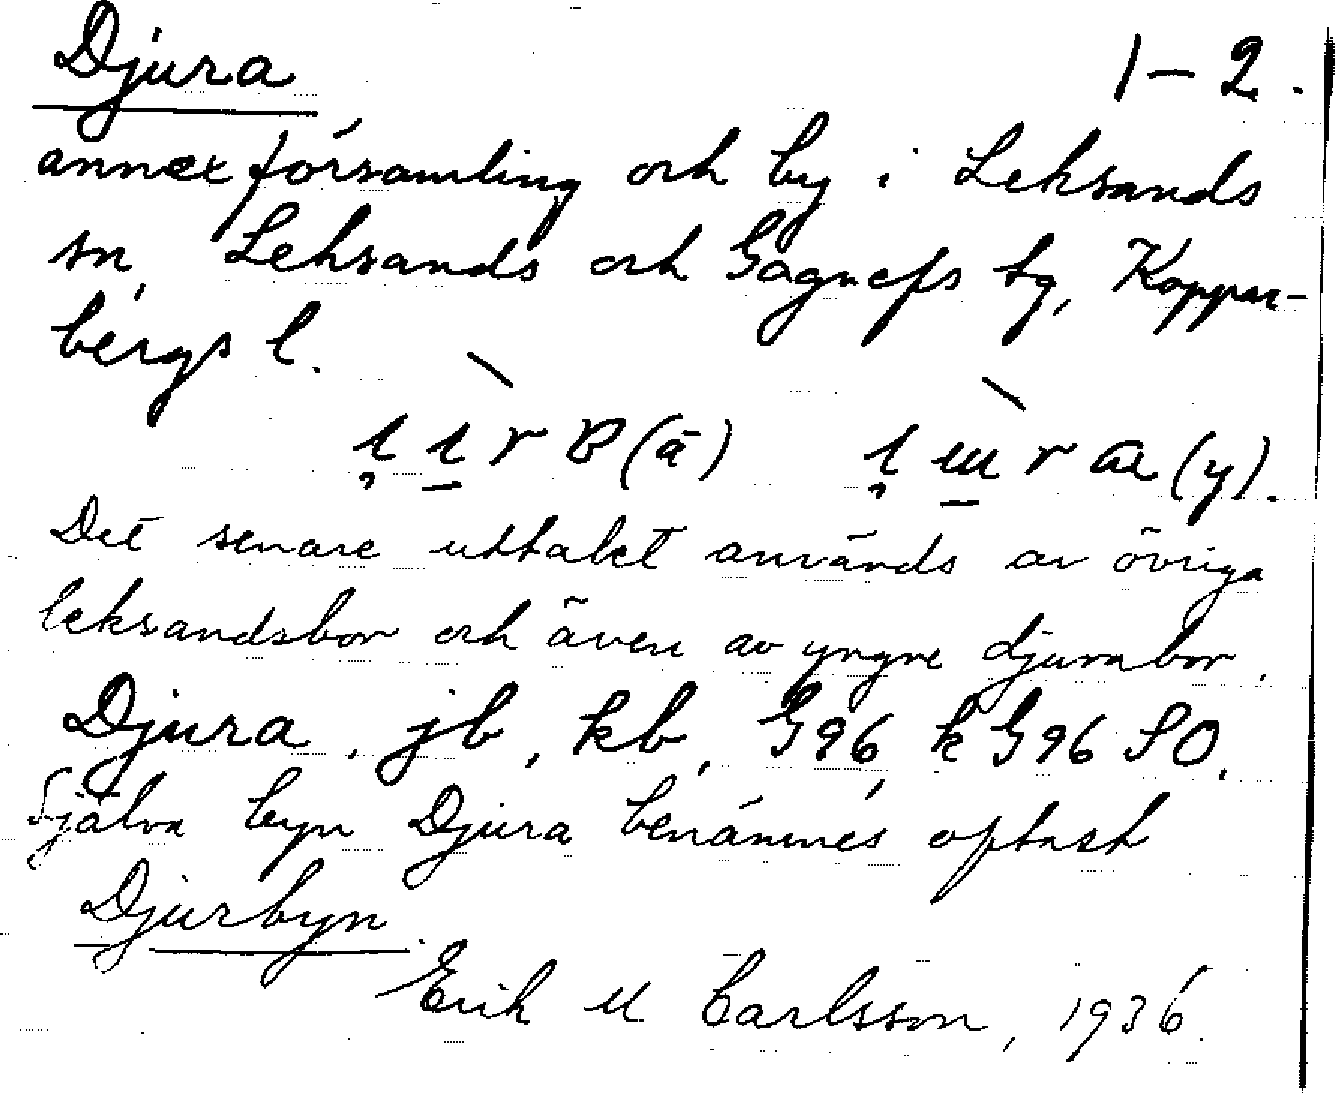 Djura 1-2.
annexförsamling och by i Leksands
sn, Leksands och Gagnefs tg, Koppar-
bergs l.
(ä) (y).
Det senare uttalet används av övriga
leksandsbor och även av yngre djurabor.
Djura, jb, kb, G96, k G96 SO.
Själva byn Djura benämnes oftast
Djurbyn.
Erik M Carlsson, 1936.